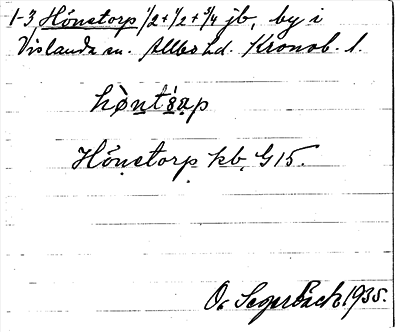 1-3 Hönetorp 1/2+1/2+3/4 jb, by i
Vislanda sn. Allbo hd. Kronob. l.
hö̀ntsap
Hönetorp kb. G15.
O. Segerbäck 1935.